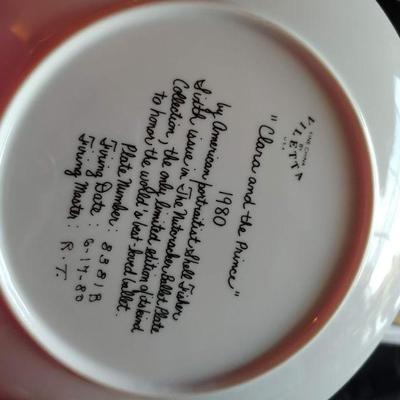 FINE CHINA
BY
VILETTA
U.S.A.
"Clara and the Prince"
1980
by American portraitist Shell Fisher
Sixth issue in The Nutcracker Ballet Plate
Collection, the only limited edition of its kind
to honor the world's best-loved ballet.
Plate Number: 8381B
Firing Date: 6-17-80
Firing Master: R.T.